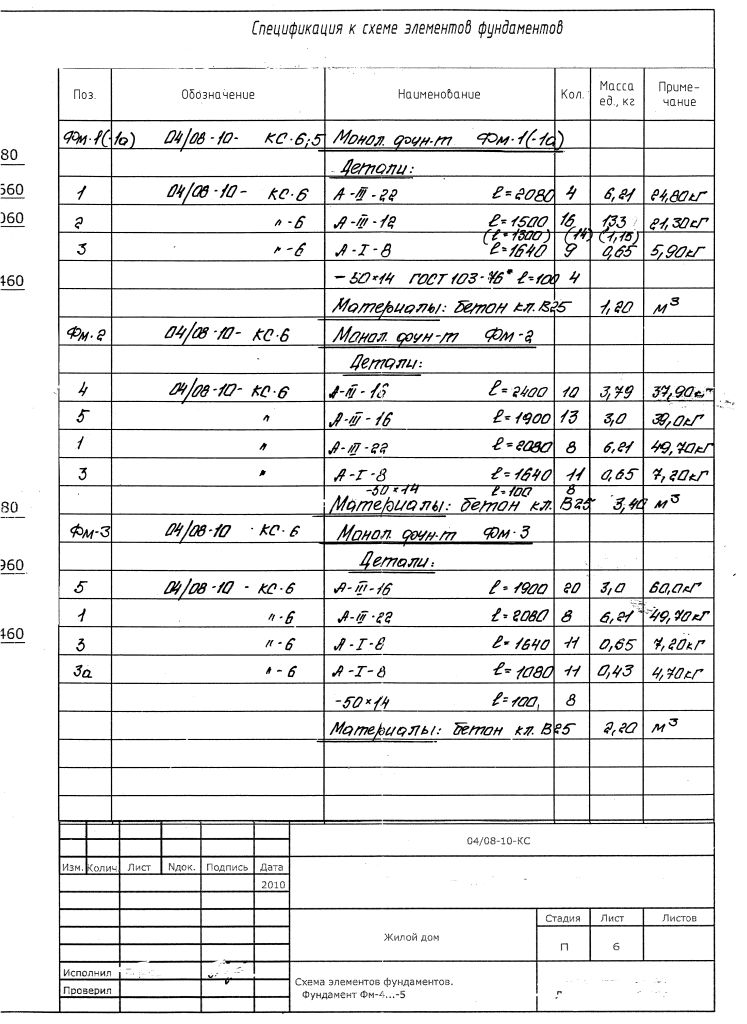 Спецификация к схеме элементов фундаментов
Поз. Обозначение Наименование Кол. Масса ед., кг Приме-чание
Фм-1(-1а) 04/08-10- КС-6;5 Монол. фун-т Фм-1(-1а)
80
Детали:
560
1 04/08-10- КС-6 А-III-22 ℓ=2080 4 6,21 24,80кг
060
2 п-6 А-III-12 ℓ=1500 16 133 21,30кг
(ℓ=1300) (14) (1,15)
3 п-6 А-I-8 ℓ=1640 9 0,65 5,90кг
460
-50×14 ГОСТ 103-76* ℓ=100 4
Материалы: бетон кл. В25 1,20 м³
Фм-2 04/08-10- КС-6 Монол. фун-т Фм-2
Детали:
4 04/08-10- КС-6 А-III-16 ℓ=2400 10 3,79 37,90кг
5 п А-III-16 ℓ=1900 13 3,0 39,0кг
1 п А-III-22 ℓ=2080 8 6,21 49,70кг
3 " А-I-8 ℓ=1640 11 0,65 7,20кг
-50×14 ℓ=100 8
80
Материалы: бетон кл. В25 3,40 м³
Фм-3 04/08-10 КС-6 Монол. фун-т Фм-3
960
Детали:
5 04/08-10 - КС-6 А-III-16 ℓ=1900 20 3,0 60,0кг
1 п-6 А-III-22 ℓ=2080 8 6,21 49,70кг
460
3 п-6 А-I-8 ℓ=1640 11 0,65 7,20кг
3а п-6 А-I-8 ℓ=1080 11 0,43 4,70кг
-50×14 ℓ=100, 8
Материалы: бетон кл. В25 2,20 м³
04/08-10-КС
Изм. Колич Лист Nдок. Подпись Дата
2010
Стадия Лист Листов
Жилой дом
П 6
Исполнил
Проверил
Схема элементов фундаментов.
Фундамент Фм-4...-5